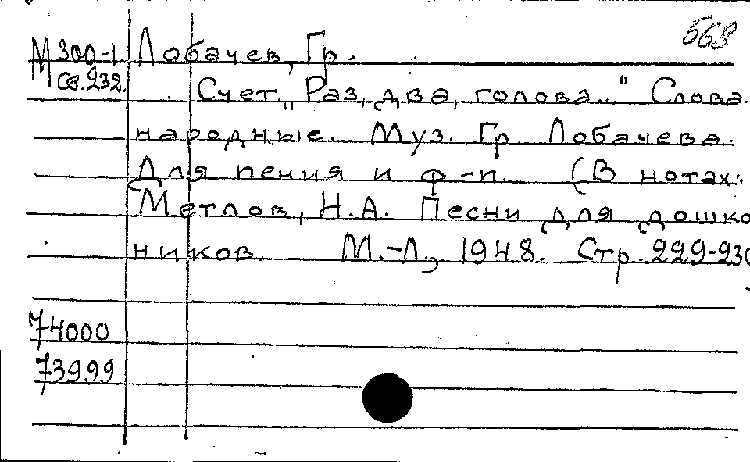 568
М 300-1 Лобачев, Гр.
св. 232
Счет „Раз, два, голова..." Слова
народные. Муз. Гр Лобачева.
Для пения и ф-п. (В нотах:
Метлов, Н.А. Песни для дошко
ников. М.-Л, 1948. Стр. 229-230
74000
73999